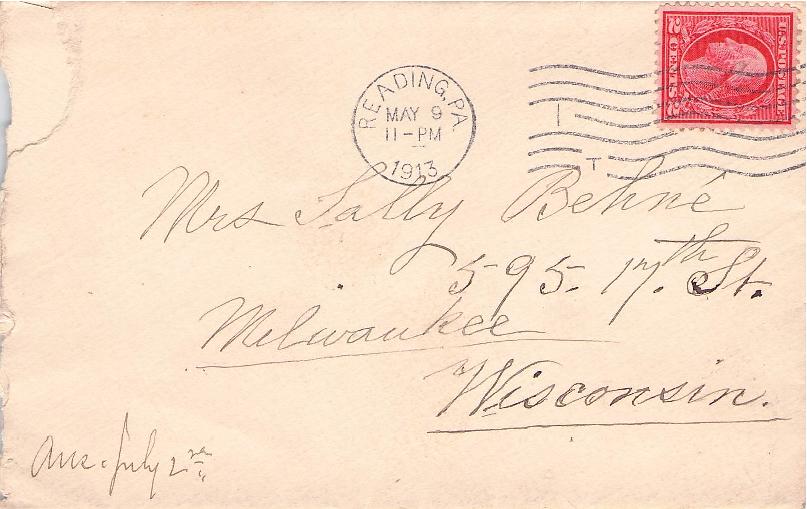 U.S. POSTAGE
2 CENTS 2
READING, PA.
MAY 9
11-PM
1913
T
Mrs Sally Behné
595. 17.th St.
Milwaukee
Wisconsin.
Ans. July 2nd